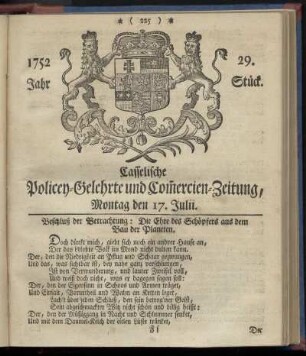 ( 225 )
1752
Jahr
29.
Stück.
Casselische
Policey-Gelehrte und Com̄ercien-Zeitung,
Montag den 17. Julii.
Beschluß der Betrachtung: Die Ehre des Schöpfers aus dem
Bau der Planeten.
Doch dünkt mich, giebt sich noch ein andrer Haufe an,
Der das belebte Volk im Mond nicht dulten kann.
Der, den die Niedrigkeit an Pflug und Schaar gezwungen,
Und das, was sichtbar ist, des nahs ganz verschlungen,
Ist von Verwunderung, und lauter Zweifel voll,
Und weiß doch nicht, was er dagegen sagen soll:
Der, den der Eigensinn in Schoos und Armen träget,
Und Einfalt, Vorurtheil und Wahn an Ketten leget,
Lacht über diese Schluß, den sein betrogner Geist,
Sein abgeschmackter Witz nicht schön und bündig heißt:
Der, den der Müssiggang in Nacht und Schlummer senket,
Und mit dem Taumel-Kelch der eiteln Lüste tränket,
Der